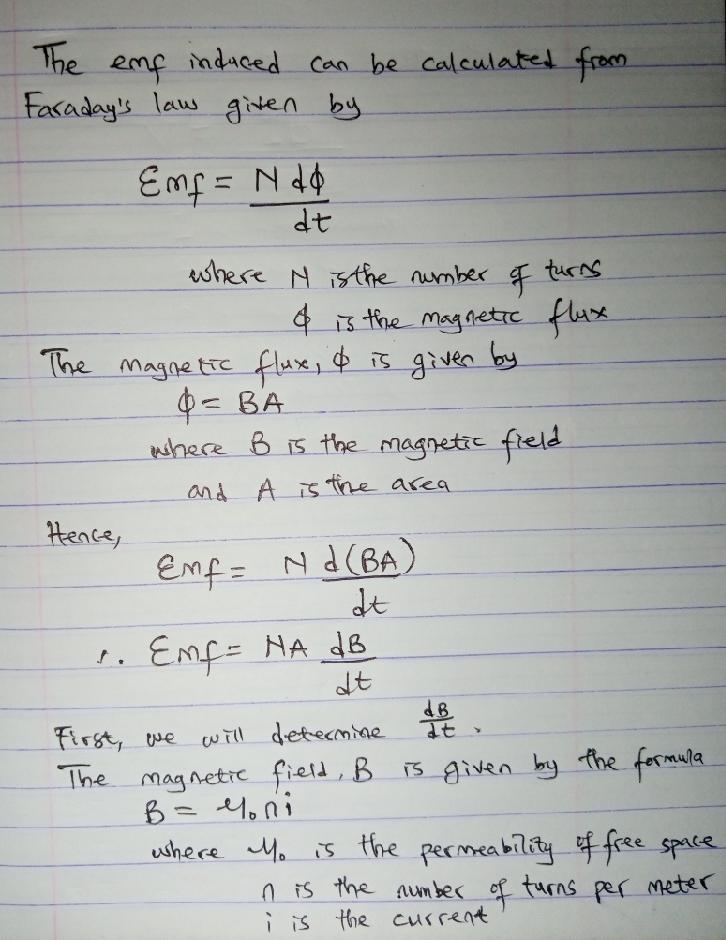 The emf induced can be calculated from
Faraday's law given by
Emf = N dϕ
dt
where N is the number of turns
ϕ is the magnetic flux
The magnetic flux, ϕ is given by
ϕ = BA
where B is the magnetic field
and A is the area
Hence,
Emf = N d(BA)
dt
∴ Emf = NA dB
dt
First, we will determine dB/dt.
The magnetic field, B is given by the formula
B = μ₀ni
where μ₀ is the permeability of free space
n is the number of turns per meter
i is the current